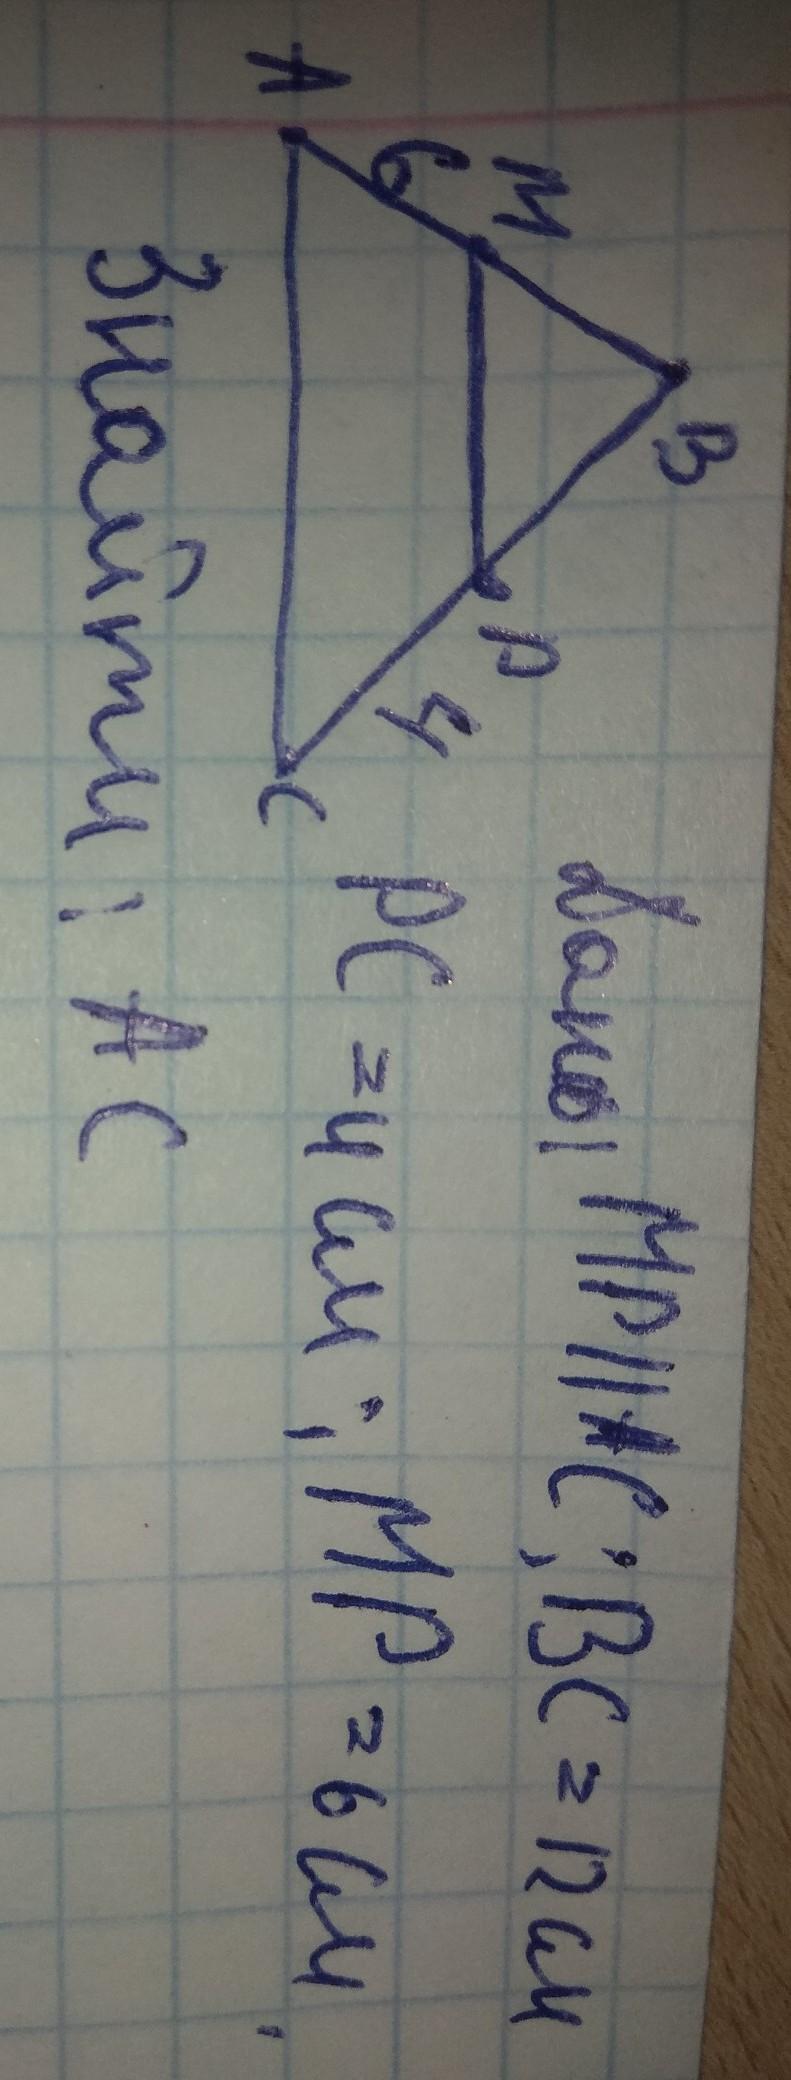 B
M
6
P
4
A
C
Дано: MP||AC; BC=12см
PC=4см; MP=6см,
Знайти: AC